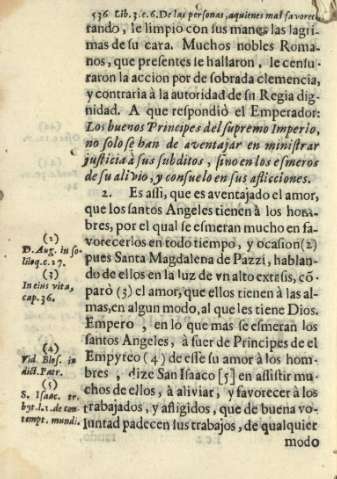 536 Lib. 3. c. 6. De las personas, aquienes mas favorecē
tando, le limpio con sus manos las lagri-
mas de su cara. Muchos nobles Roma-
nos, que presentes le hallaron, le censu-
raron la accion por de sobrada clemencia,
y contraria à la autoridad de su Regia dig-
nidad. A que respondiò el Emperador:
Los buenos Principes del supremo Imperio,
no solo se han de aventajar en ministrar
justicia à sus subditos, sino en los esmeros
de su alivio, y consuelo en sus aflicciones.
2. Es assi, que es aventajado el amor,
que los santos Angeles tienen à los hom-
bres, por el qual se esmeran mucho en fa-
vorecerlos en todo tiempo, y ocasion (2)
pues Santa Magdalena de Pazzi, hablan-
do de ellos en la luz de vn alto extasis, cō-
parò (3) el amor, que ellos tienen à las al-
mas, en algun modo, al que les tiene Dios.
Empero, en lo que mas se esmeran los
santos Angeles, à fuer de Principes de el
Empyreo (4) de esse su amor à los hom-
bres, dize San Isaaco [5] en assistir mu-
chos de ellos, à aliviar, y favorecer à los
trabajados, y afligidos, que de buena vo-
luntad padecen sus trabajos, de qualquier
modo
(2)
D. Aug. in so-
liloq. c. 27.
(3)
In eius vita,
cap. 36.
(4)
Vid. Blos. in
dict. Patr.
(5)
S. Isaac. tr.
byr. l. 1. de con-
tempt. mundi.